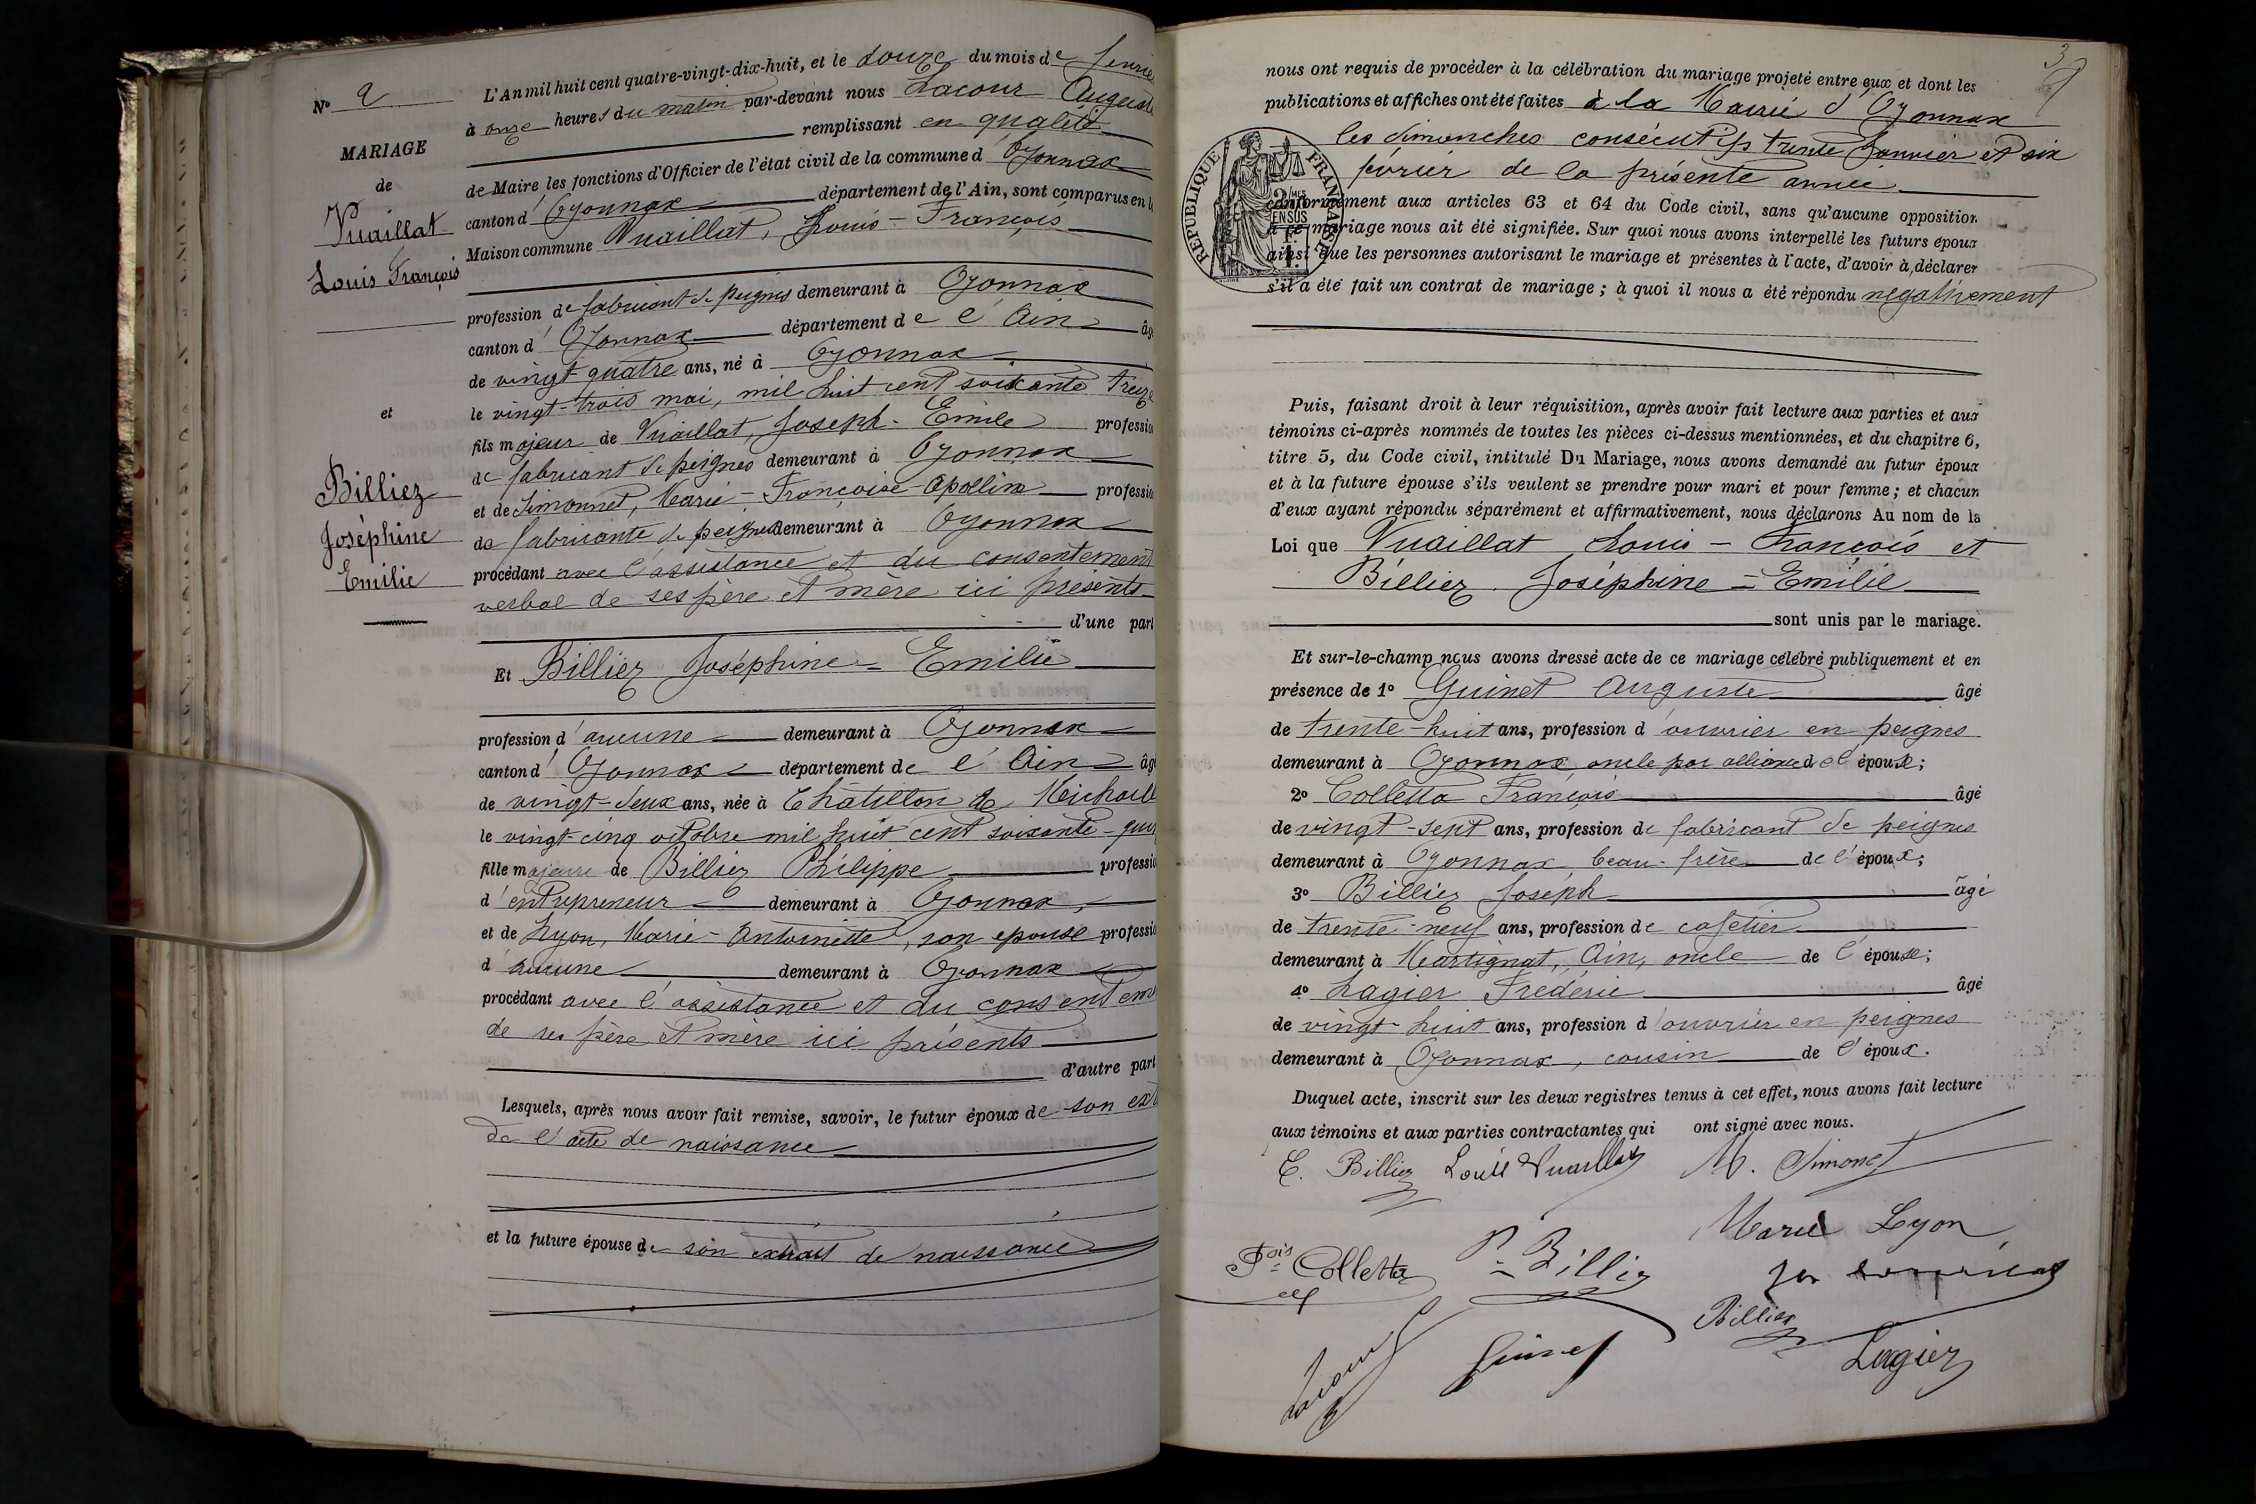 N° 9
MARIAGE
de
Vuaillat
Louis François
et
Billiez
Joséphine
Emilie
L'An mil huit cent quatre-vingt-dix-huit, et le douze du mois de fevrie
à onze heures du matin par-devant nous Lacour Auguste
remplissant en qualité
de Maire les fonctions d'Officier de l'état civil de la commune d' Oyonnax
canton d' Oyonnax département de l'Ain, sont comparus en l
Maison commune Vuaillat, Louis-François
profession de fabricant de peignes demeurant à Oyonnax
canton d' Oyonnax département de l'Ain âg
de vingt quatre ans, né à Oyonnax
le vingt-trois mai, mil huit cent soixante treize
fils majeur de Vuaillat, Joseph-Emile professio
de fabricant de peignes demeurant à Oyonnax
et de Simonnet, Marie-Françoise-Apolline professio
de fabricante de peignes demeurant à Oyonnax
procédant avec l'assistance et du consentement
verbal de ses père et mère ici présents
d'une part
Et Billiez Joséphine-Emilie
profession d'aucune demeurant à Oyonnax
canton d' Oyonnax département de l'Ain âg
de vingt-deux ans, née à Châtillon de Michaill
le vingt-cinq octobre mil huit cent soixante-quin
fille majeure de Billiez Philippe professio
d'entrepreneur demeurant à Oyonnax,
et de Lyon, Marie-Antoinette, son épouse professio
d'aucune demeurant à Oyonnax
procédant avec l'assistance et du consentem
de ses père et mère ici présents
d'autre part
Lesquels, après nous avoir fait remise, savoir, le futur époux de son ext
de l'acte de naissance
et la future épouse de son extrait de naissance
nous ont requis de procéder à la célébration du mariage projeté entre eux et dont les
publications et affiches ont été faites à la Mairie d'Oyonnax
les dimanches consécutifs trente Janvier et six
février de la présente année
REPUBLIQUE FRANÇAISE
conformément aux articles 63 et 64 du Code civil, sans qu'aucune opposition
à ce mariage nous ait été signifiée. Sur quoi nous avons interpellé les futurs époux
ainsi que les personnes autorisant le mariage et présentes à l'acte, d'avoir à déclarer
s'il a été fait un contrat de mariage ; à quoi il nous a été répondu négativement
Puis, faisant droit à leur réquisition, après avoir fait lecture aux parties et aux
témoins ci-après nommés de toutes les pièces ci-dessus mentionnées, et du chapitre 6,
titre 5, du Code civil, intitulé Du Mariage, nous avons demandé au futur époux
et à la future épouse s'ils veulent se prendre pour mari et pour femme ; et chacun
d'eux ayant répondu séparément et affirmativement, nous déclarons Au nom de la
Loi que Vuaillat Louis-François et
Billiez Joséphine-Emilie
sont unis par le mariage.
Et sur-le-champ nous avons dressé acte de ce mariage célébré publiquement et en
présence de 1° Guinet Auguste âgé
de trente-huit ans, profession d'ouvrier en peignes
demeurant à Oyonnax, oncle par alliance de l'époux ;
2° Colletta François âgé
de vingt-sept ans, profession de fabricant de peignes
demeurant à Oyonnax, beau-frère de l'époux ;
3° Billiez Joseph âgé
de trente-neuf ans, profession de cafetier
demeurant à Martignat, Ain, oncle de l'épouse ;
4° Lagier Frédéric âgé
de vingt-huit ans, profession d'ouvrier en peignes
demeurant à Oyonnax, cousin de l'époux.
Duquel acte, inscrit sur les deux registres tenus à cet effet, nous avons fait lecture
aux témoins et aux parties contractantes qui ont signé avec nous.
E. Billiez Louis Vuaillat M. Simonet
Marie Lyon
Fois Colletta P. Billiez
Billiez
Lacour Guinet Lagier